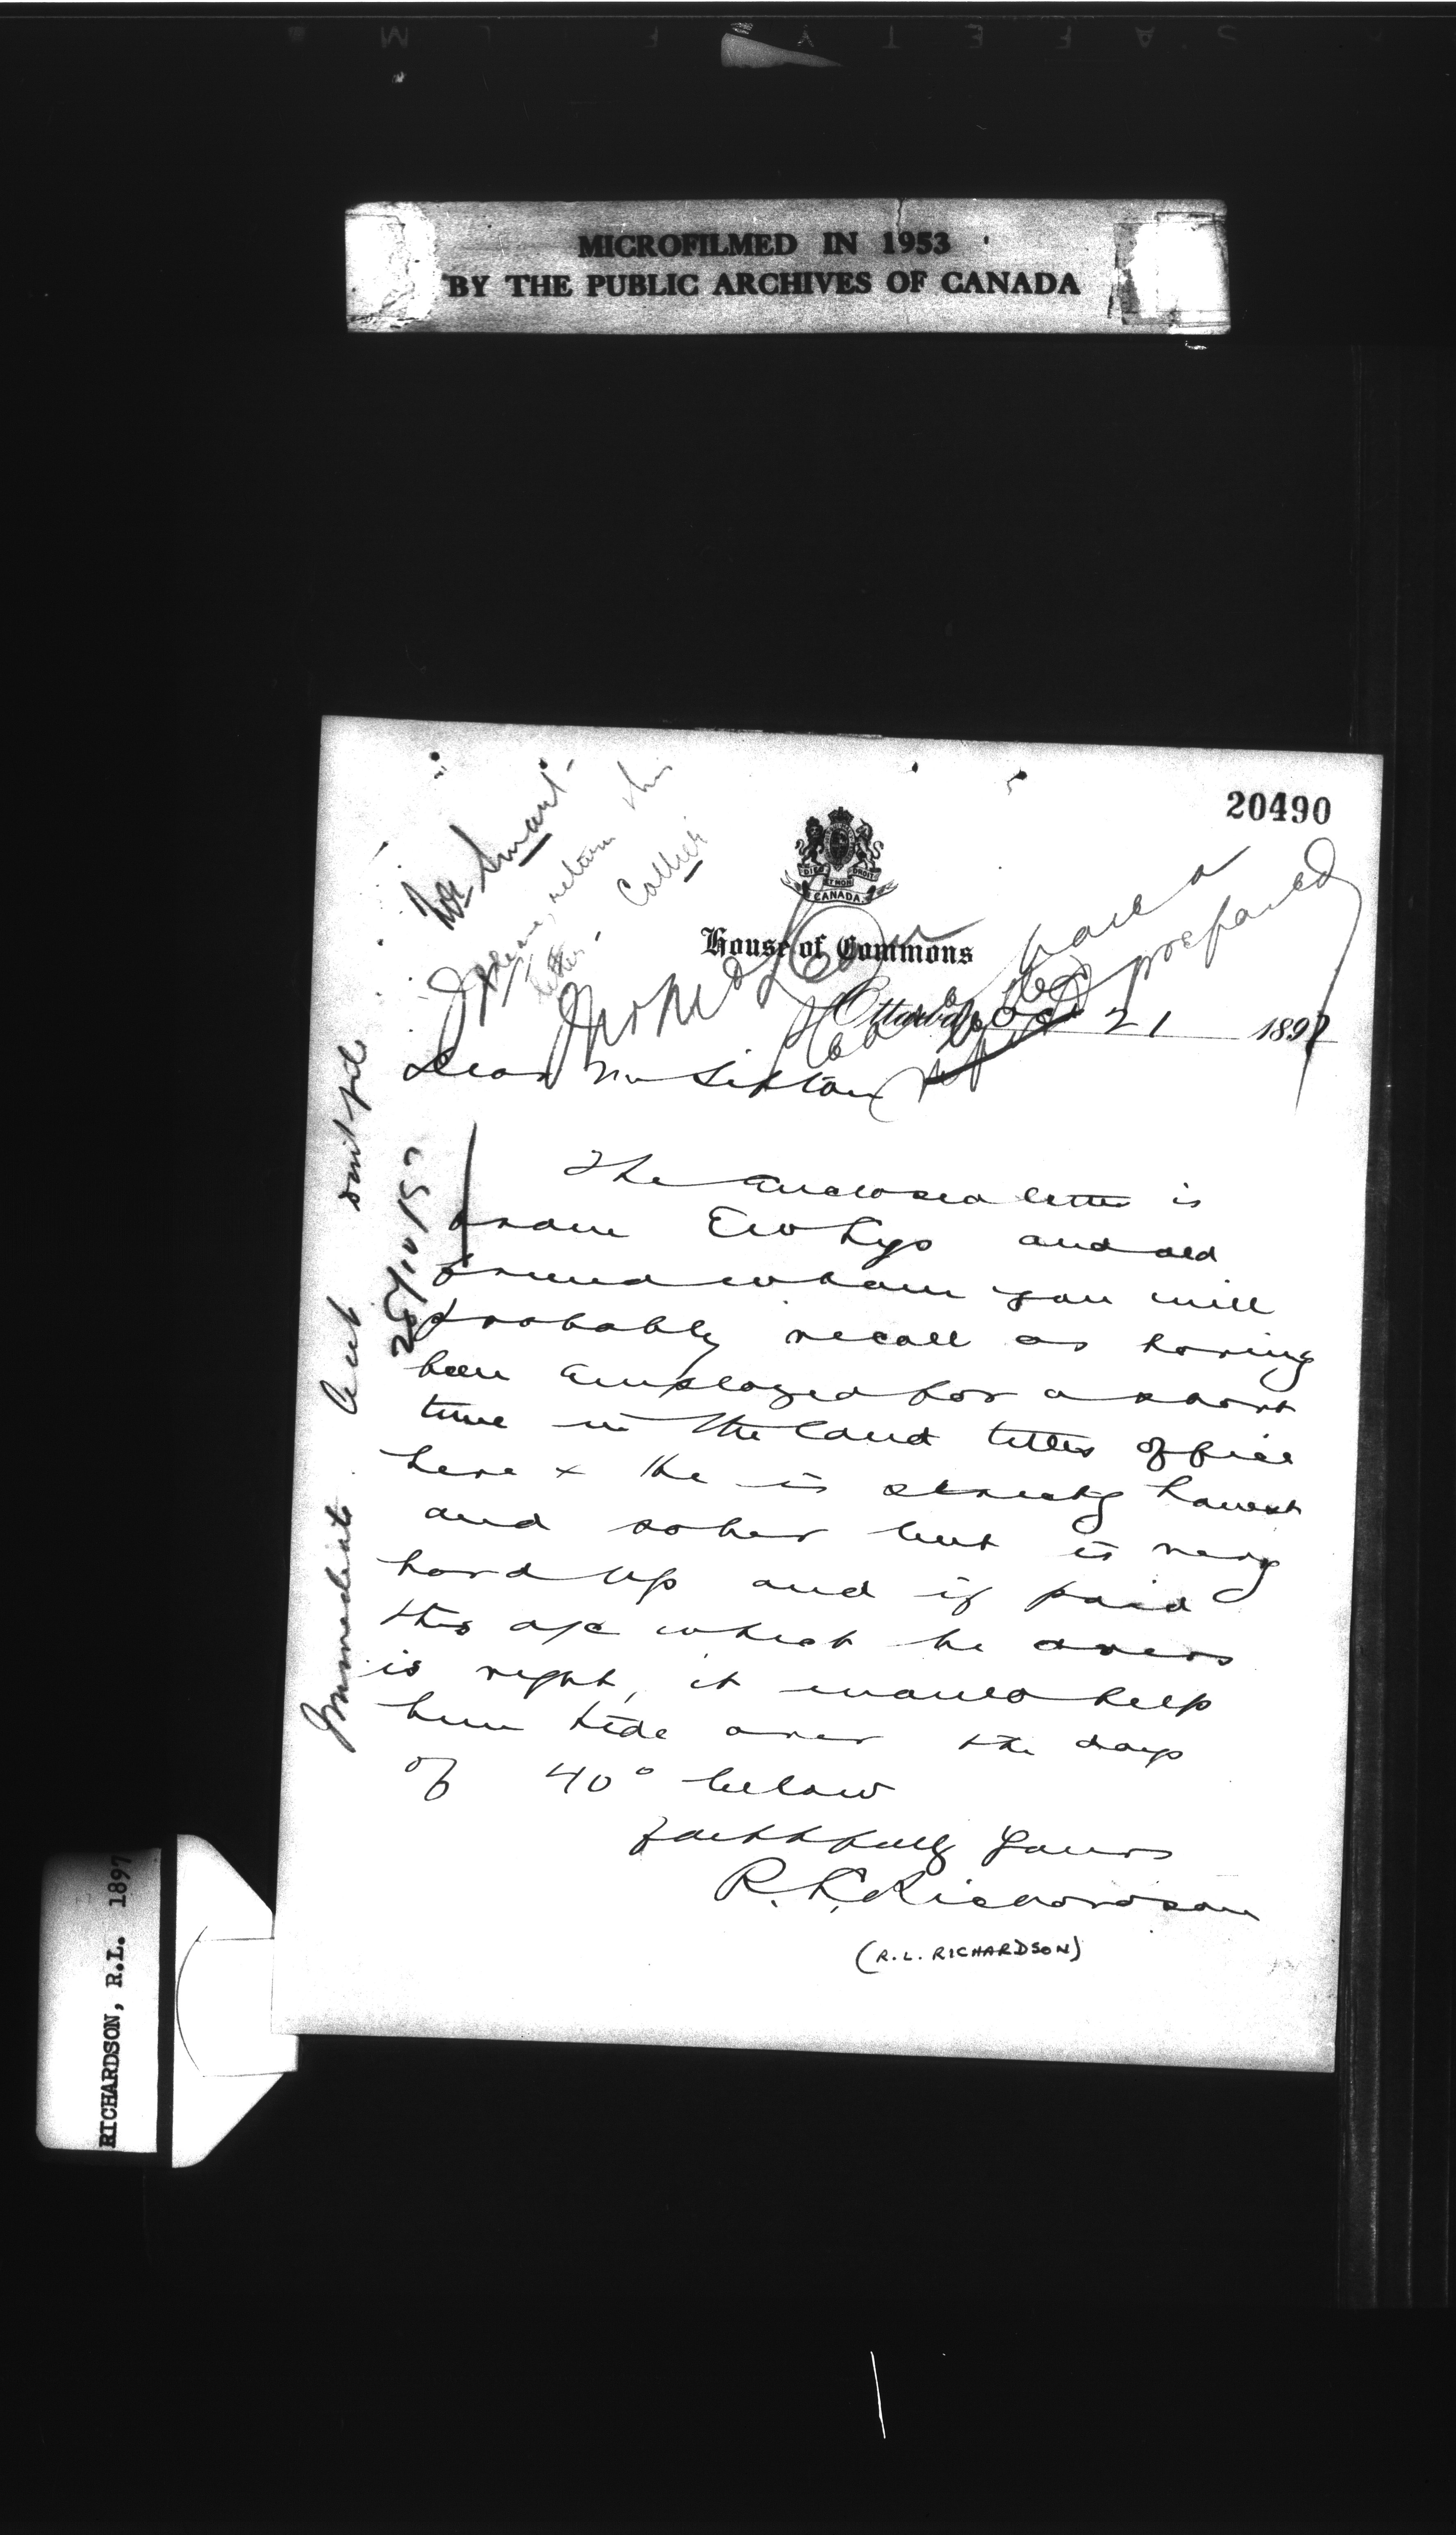 MICROFILMED IN 1953
BY THE PUBLIC ARCHIVES OF CANADA
20490
Mr Smart-
please, return this
letter.
Collier
DIEU ET MON DROIT
CANADA
House of Commons
have a
prepared
Ottawa, Oct 21 1897
Dear Mr Sifton
The enclosed letter is
from E W Lys and old
friend whom you will
probably recall as having
been employed for a short
time in the land titles office
here & He is strictly honest
and sober but is very
hard up and if paid
this a/c which he avers
is right, it would help
him tide over the days
of 40° below
faithfully Yours
R. L. Richardson
(R. L. RICHARDSON)
Immediate
25/10/97
RICHARDSON, R.L. 1897